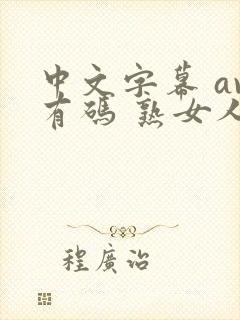 中文字幕 av
有碼 熟女人
程廣詒